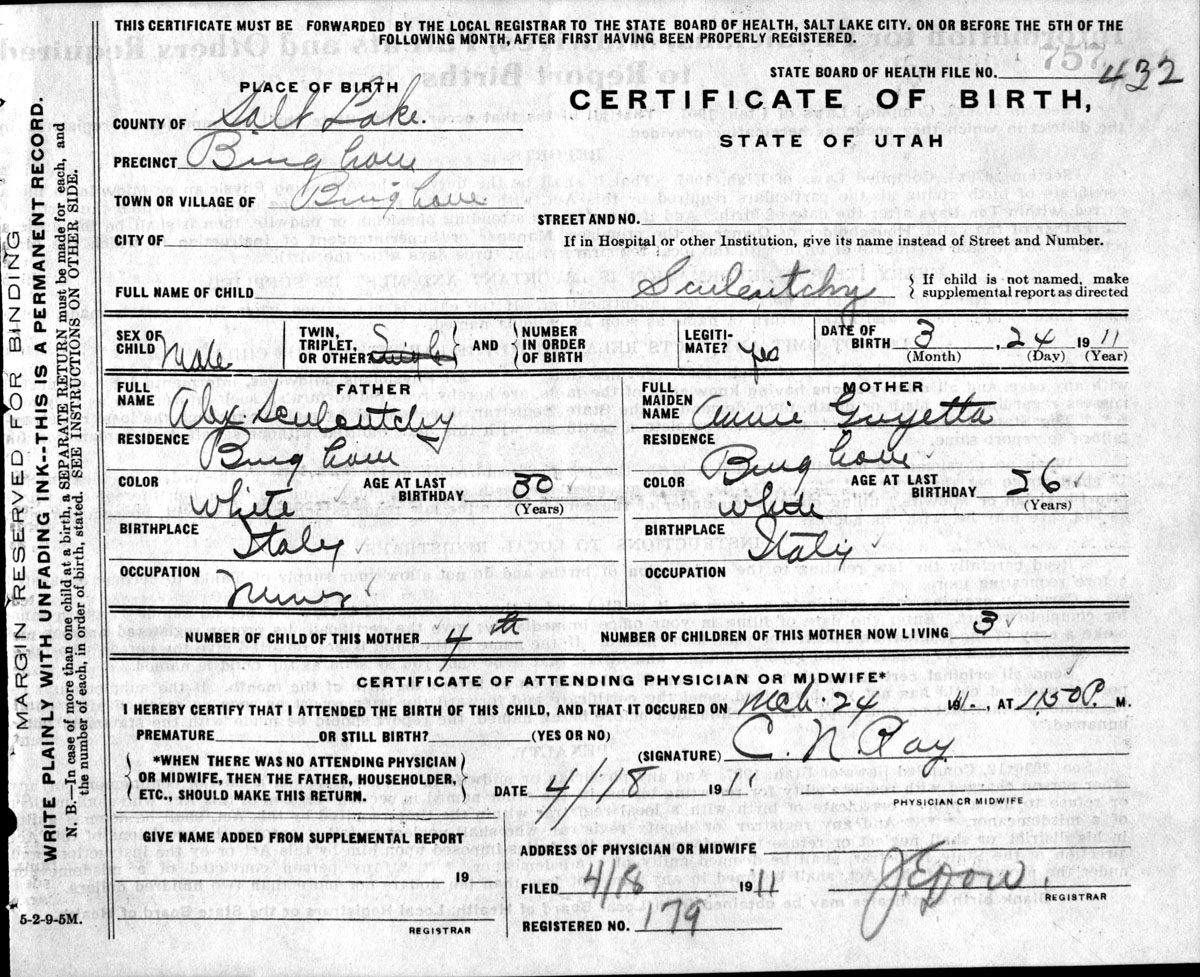 THIS CERTIFICATE MUST BE FORWARDED BY THE LOCAL REGISTRAR TO THE STATE BOARD OF HEALTH, SALT LAKE CITY, ON OR BEFORE THE 5TH OF THE
FOLLOWING MONTH, AFTER FIRST HAVING BEEN PROPERLY REGISTERED.
STATE BOARD OF HEALTH FILE NO. 432
CERTIFICATE OF BIRTH,
STATE OF UTAH
PLACE OF BIRTH
COUNTY OF Salt Lake.
PRECINCT Bingham
TOWN OR VILLAGE OF Bingham
STREET AND NO.
CITY OF
If in Hospital or other Institution, give its name instead of Street and Number.
FULL NAME OF CHILD
If child is not named, make
supplemental report as directed
SEX OF CHILD Male
TWIN, TRIPLET, OR OTHER? AND NUMBER IN ORDER OF BIRTH
LEGITI-MATE? yes
DATE OF BIRTH 3, 24 1911
(Month) (Day) (Year)
FATHER
FULL NAME
RESIDENCE Bingham
COLOR White
AGE AT LAST BIRTHDAY 30
(Years)
BIRTHPLACE Italy
OCCUPATION Miner
MOTHER
FULL MAIDEN NAME Annie
RESIDENCE Bingham
COLOR White
AGE AT LAST BIRTHDAY 26
(Years)
BIRTHPLACE Italy
OCCUPATION
NUMBER OF CHILD OF THIS MOTHER 4th
NUMBER OF CHILDREN OF THIS MOTHER NOW LIVING 3
CERTIFICATE OF ATTENDING PHYSICIAN OR MIDWIFE*
I HEREBY CERTIFY THAT I ATTENDED THE BIRTH OF THIS CHILD, AND THAT IT OCCURED ON Mch. 24 191 , AT 1150 P. M.
PREMATURE OR STILL BIRTH? (YES OR NO)
(SIGNATURE) C. N. Ray
PHYSICIAN OR MIDWIFE
*WHEN THERE WAS NO ATTENDING PHYSICIAN
OR MIDWIFE, THEN THE FATHER, HOUSEHOLDER,
ETC., SHOULD MAKE THIS RETURN.
DATE 4/18 1911
GIVE NAME ADDED FROM SUPPLEMENTAL REPORT
19
REGISTRAR
ADDRESS OF PHYSICIAN OR MIDWIFE
FILED 4/18 1911
REGISTRAR
REGISTERED NO. 179
5-2-9-5M.
MARGIN RESERVED FOR BINDING
WRITE PLAINLY WITH UNFADING INK--THIS IS A PERMANENT RECORD.
N. B.—In case of more than one child at a birth, a SEPARATE RETURN must be made for each, and
the number of each, in order of birth, stated. SEE INSTRUCTIONS ON OTHER SIDE.